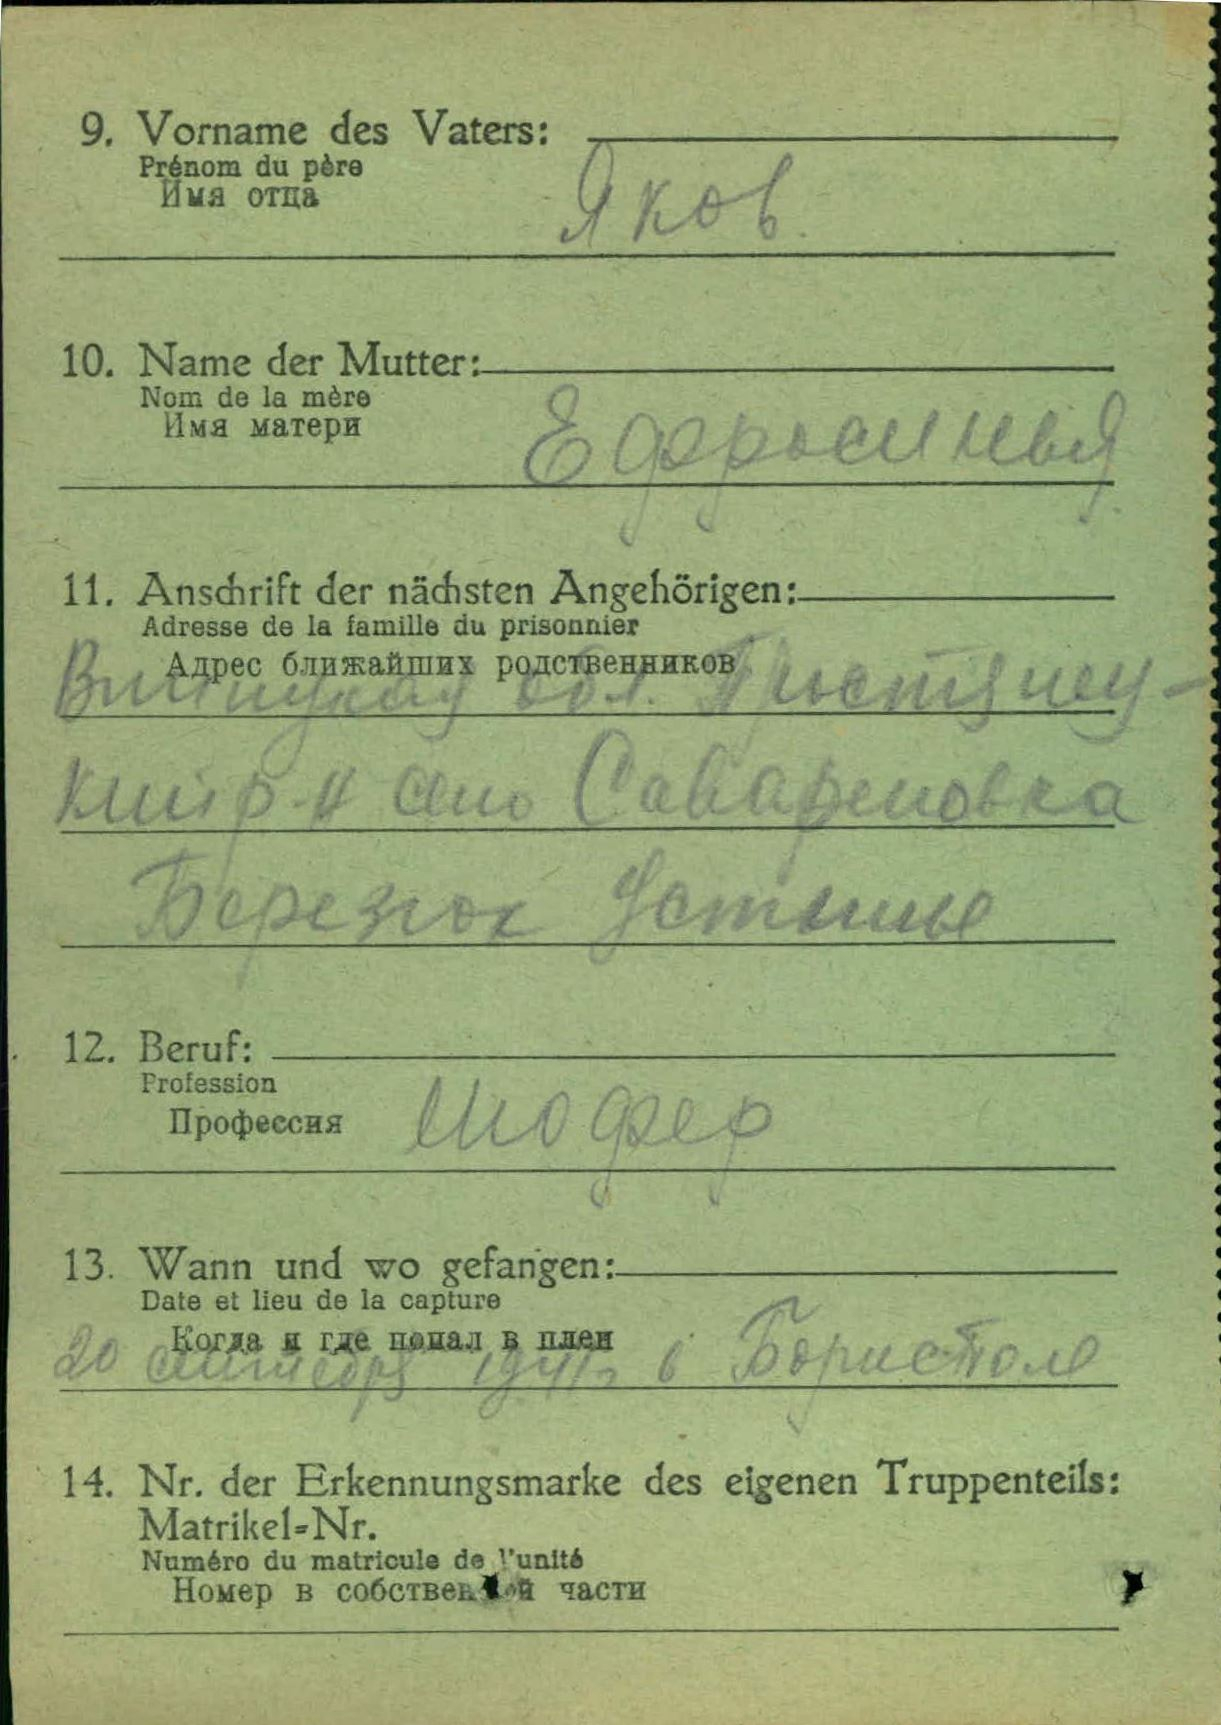 9. Vorname des Vaters:
Prénom du père
Имя отца
Яков
10. Name der Mutter:
Nom de la mère
Имя матери
Ефросинья
11. Anschrift der nächsten Angehörigen:
Adresse de la famille du prisonnier
Адрес ближайших родственников
обл.
кий р-н село
Березюк Устинье
12. Beruf:
Profession
Профессия
Шофер
13. Wann und wo gefangen:
Date et lieu de la capture
Когда и где попал в плен
20 сентября 1941 г в Бористоле
14. Nr. der Erkennungsmarke des eigenen Truppenteils:
Matrikel-Nr.
Numéro du matricule de l'unité
Номер в собственной части